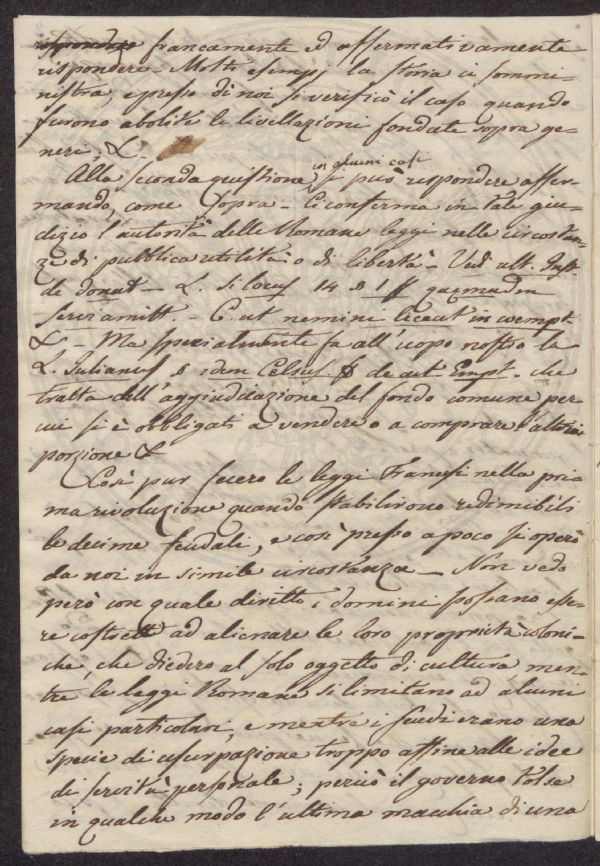 francamente ed affermativamente
rispondere - Molti esempj la storia ci sommi-
nistra, e presso di noi si verificò il caso quando
furono abolite le livellazioni fondate sopra ge-
neri, &.
in alcuni casi
Alla seconda questione si può rispondere affer-
mando, come sopra - Ci conferma in tale giu-
dizio l'autorità delle Romane leggi nelle circostan-
ze di pubblica utilità o di libertà - Ved. ult. Inst.
de donat - L. si locus 14 § 1 ff quemadm
servi amitt. - C. ut nemini liceat in coempt.
& - Ma specialmente fa all'uopo nostro la
L. Julianus § idem Celsus ff de act. Empt. che
tratta dell'aggiudicazione del fondo comune per
cui si è obbligati a vendere o a comprare l'altrui
porzione &
Così pur fecero le leggi Francesi nella pri-
ma rivoluzione quando stabilirono redimibili
le decime feudali, e così presso a poco si operò
da noi in simile circostanza - Non vedo
però con quale diritto i domini possano esse-
re costretti ad alienare le loro proprietà coloni-
che, che diedero al solo oggetto di cultura, men-
tre le leggi Romane si limitano ad alcuni
casi particolari, e mentre i feudi erano una
specie di usurpazione troppo affine alle idee
di servitù personale; perciò il governo tolse
in qualche modo l'ultima macchia di una